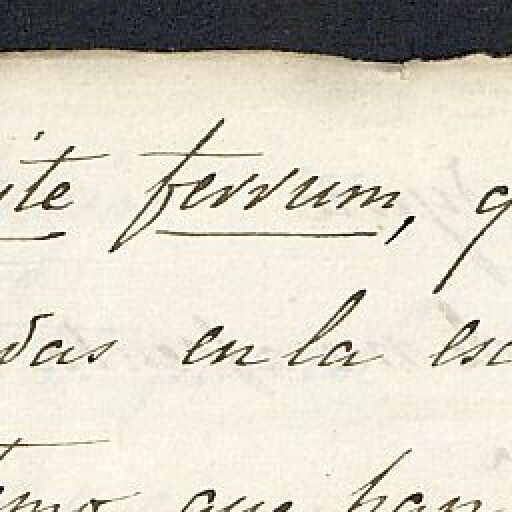 ite ferrum, q
das en la esc
emo que han